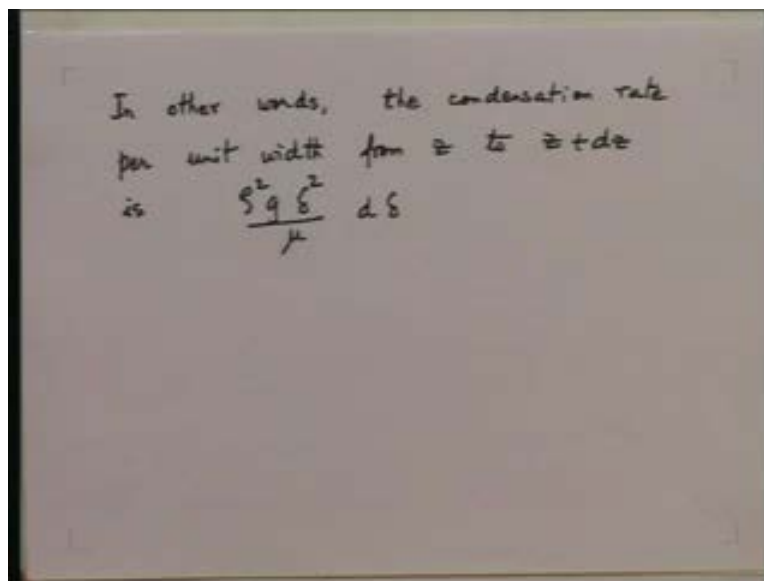 In other words, the condensation rate
per unit width from z to z+dz
is ρ²gδ²/μ dδ